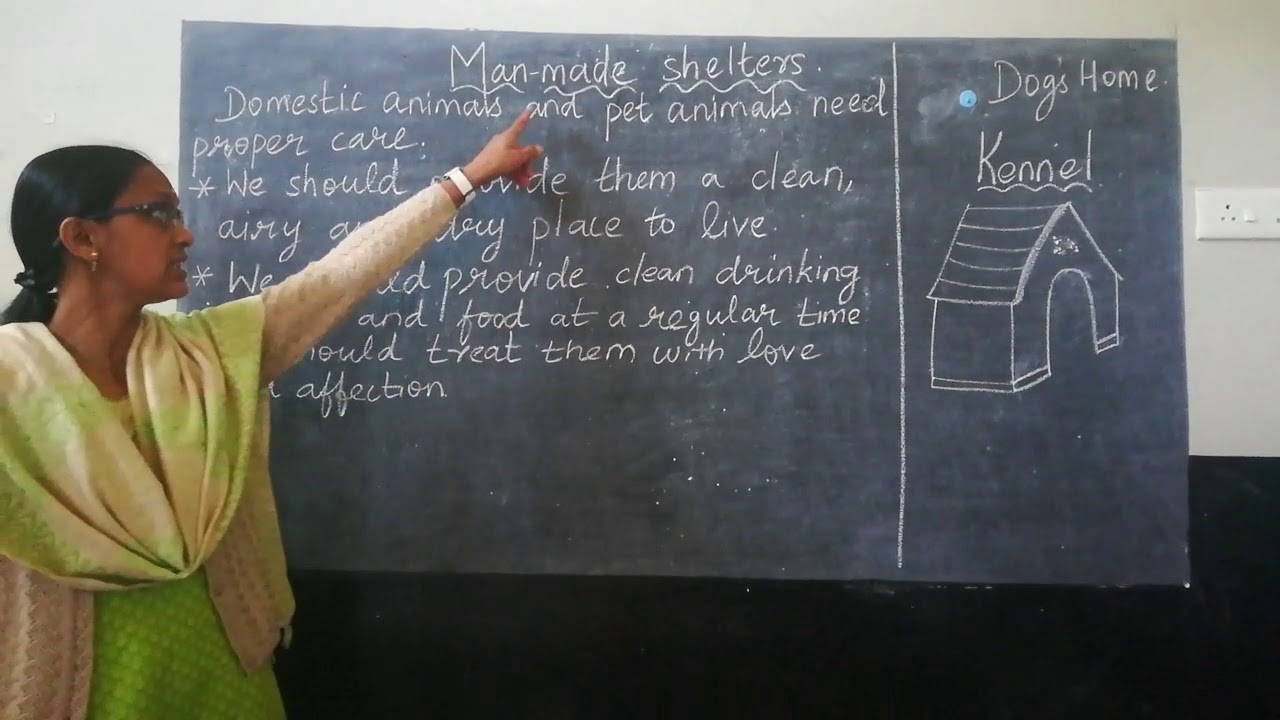 Man-made shelters.
Domestic animals and pet animals need
proper care.
* We should provide them a clean,
airy dry place to live.
* We provide clean drinking
and food at a regular time
should treat them with love
affection.
Dogs Home.
Kennel